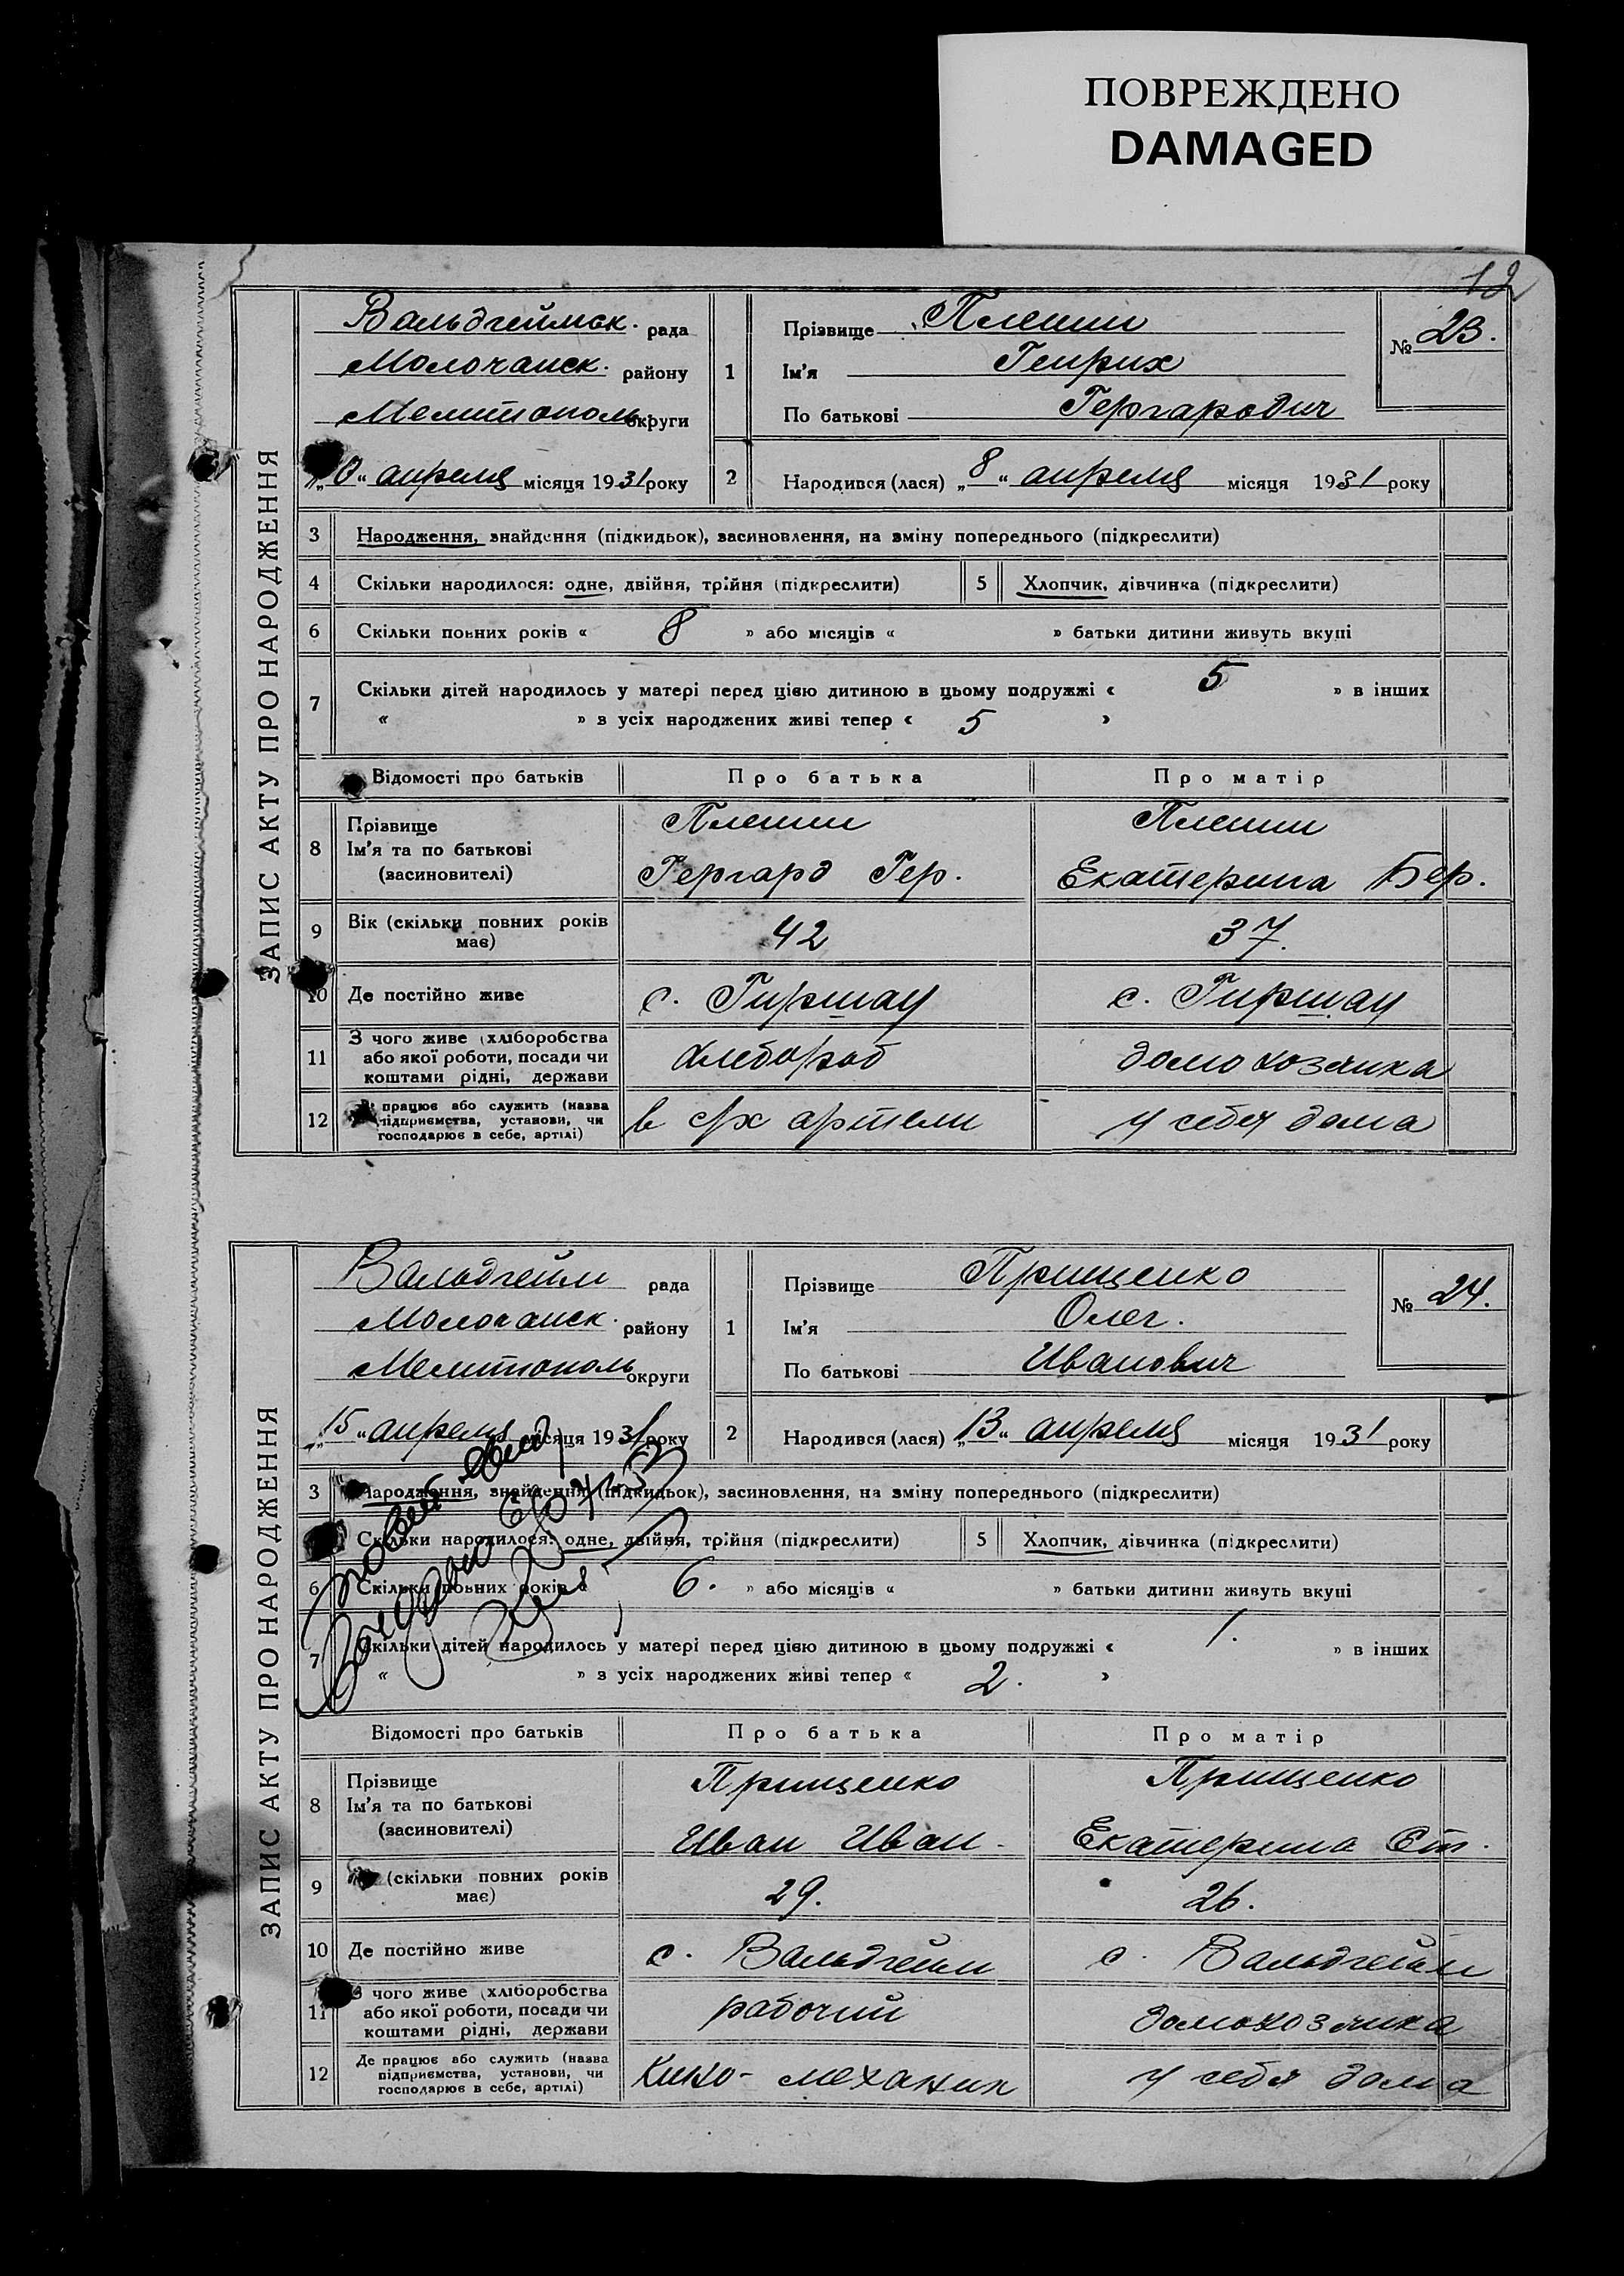 ПОВРЕЖДЕНО
DAMAGED
12
ЗАПИС АКТУ ПРО НАРОДЖЕННЯ
Вальдгеймск. рада
Молочанск. району
Мелитополь округи
0 “ апреля місяця 1931 року
1 Прізвище Пленин
Ім'я Генрих
По батькові Гергардович
№ 23.
2 Народився (лася) „ 8 “ апреля місяця 1931 року
3 Народження, знайдення (підкидьок), засиновлення, на зміну попереднього (підкреслити)
4 Скільки народилося: одне, двійня, трійня (підкреслити) 5 Хлопчик, дівчинка (підкреслити)
6 Скільки повних років « 8 » або місяців « » батьки дитини живуть вкупі
7 Скільки дітей народилось у матері перед цією дитиною в цьому подружжі « 5 » в інших
« » з усіх народжених живі тепер « 5 »
Відомості про батьків Про батька Про матір
8 Прізвище Пленин Пленин
Ім'я та по батькові
(засиновителі) Гергард Гер. Екатерина Бер.
9 Вік (скільки повних років має) 42 37.
10 Де постійно живе с. Гиршау с. Гиршау
11 З чого живе (хліборобства
або якої роботи, посади чи хлебороб домохозяика
коштами рідні, держави
12 працює або служить (назва
підприємства, установи, чи в с/х артели у себя дома
господарює в себе, артілі)
ЗАПИС АКТУ ПРО НАРОДЖЕННЯ
Вальдгейм рада
Молочанск. району
Мелитополь округи
„ 15 “ апреля місяця 1931 року
1 Прізвище Прищенко
Ім'я Олег.
По батькові Иванович
№ 24.
2 Народився (лася) „ 13 “ апреля місяця 1931 року
3 Народження, знайдення (підкидьок), засиновлення, на зміну попереднього (підкреслити)
Скільки народилося: одне, двійня, трійня (підкреслити) 5 Хлопчик, дівчинка (підкреслити)
6 Скільки повних років « 6. » або місяців « » батьки дитини живуть вкупі
7 Скільки дітей народилось у матері перед цією дитиною в цьому подружжі « 1. » в інших
« » з усіх народжених живі тепер « 2. »
Відомості про батьків Про батька Про матір
8 Прізвище Прищенко Прищенко
Ім'я та по батькові
(засиновителі) Иван Иван. Екатерина Ст.
9 (скільки повних років має) 29. 26.
10 Де постійно живе с. Вальдгейм с. Вальдгейм
11 З чого живе (хліборобства
або якої роботи, посади чи рабочий домохозяика
коштами рідні, держави
12 Де працює або служить (назва
підприємства, установи, чи Кино-механик у себя дома
господарює в себе, артілі)